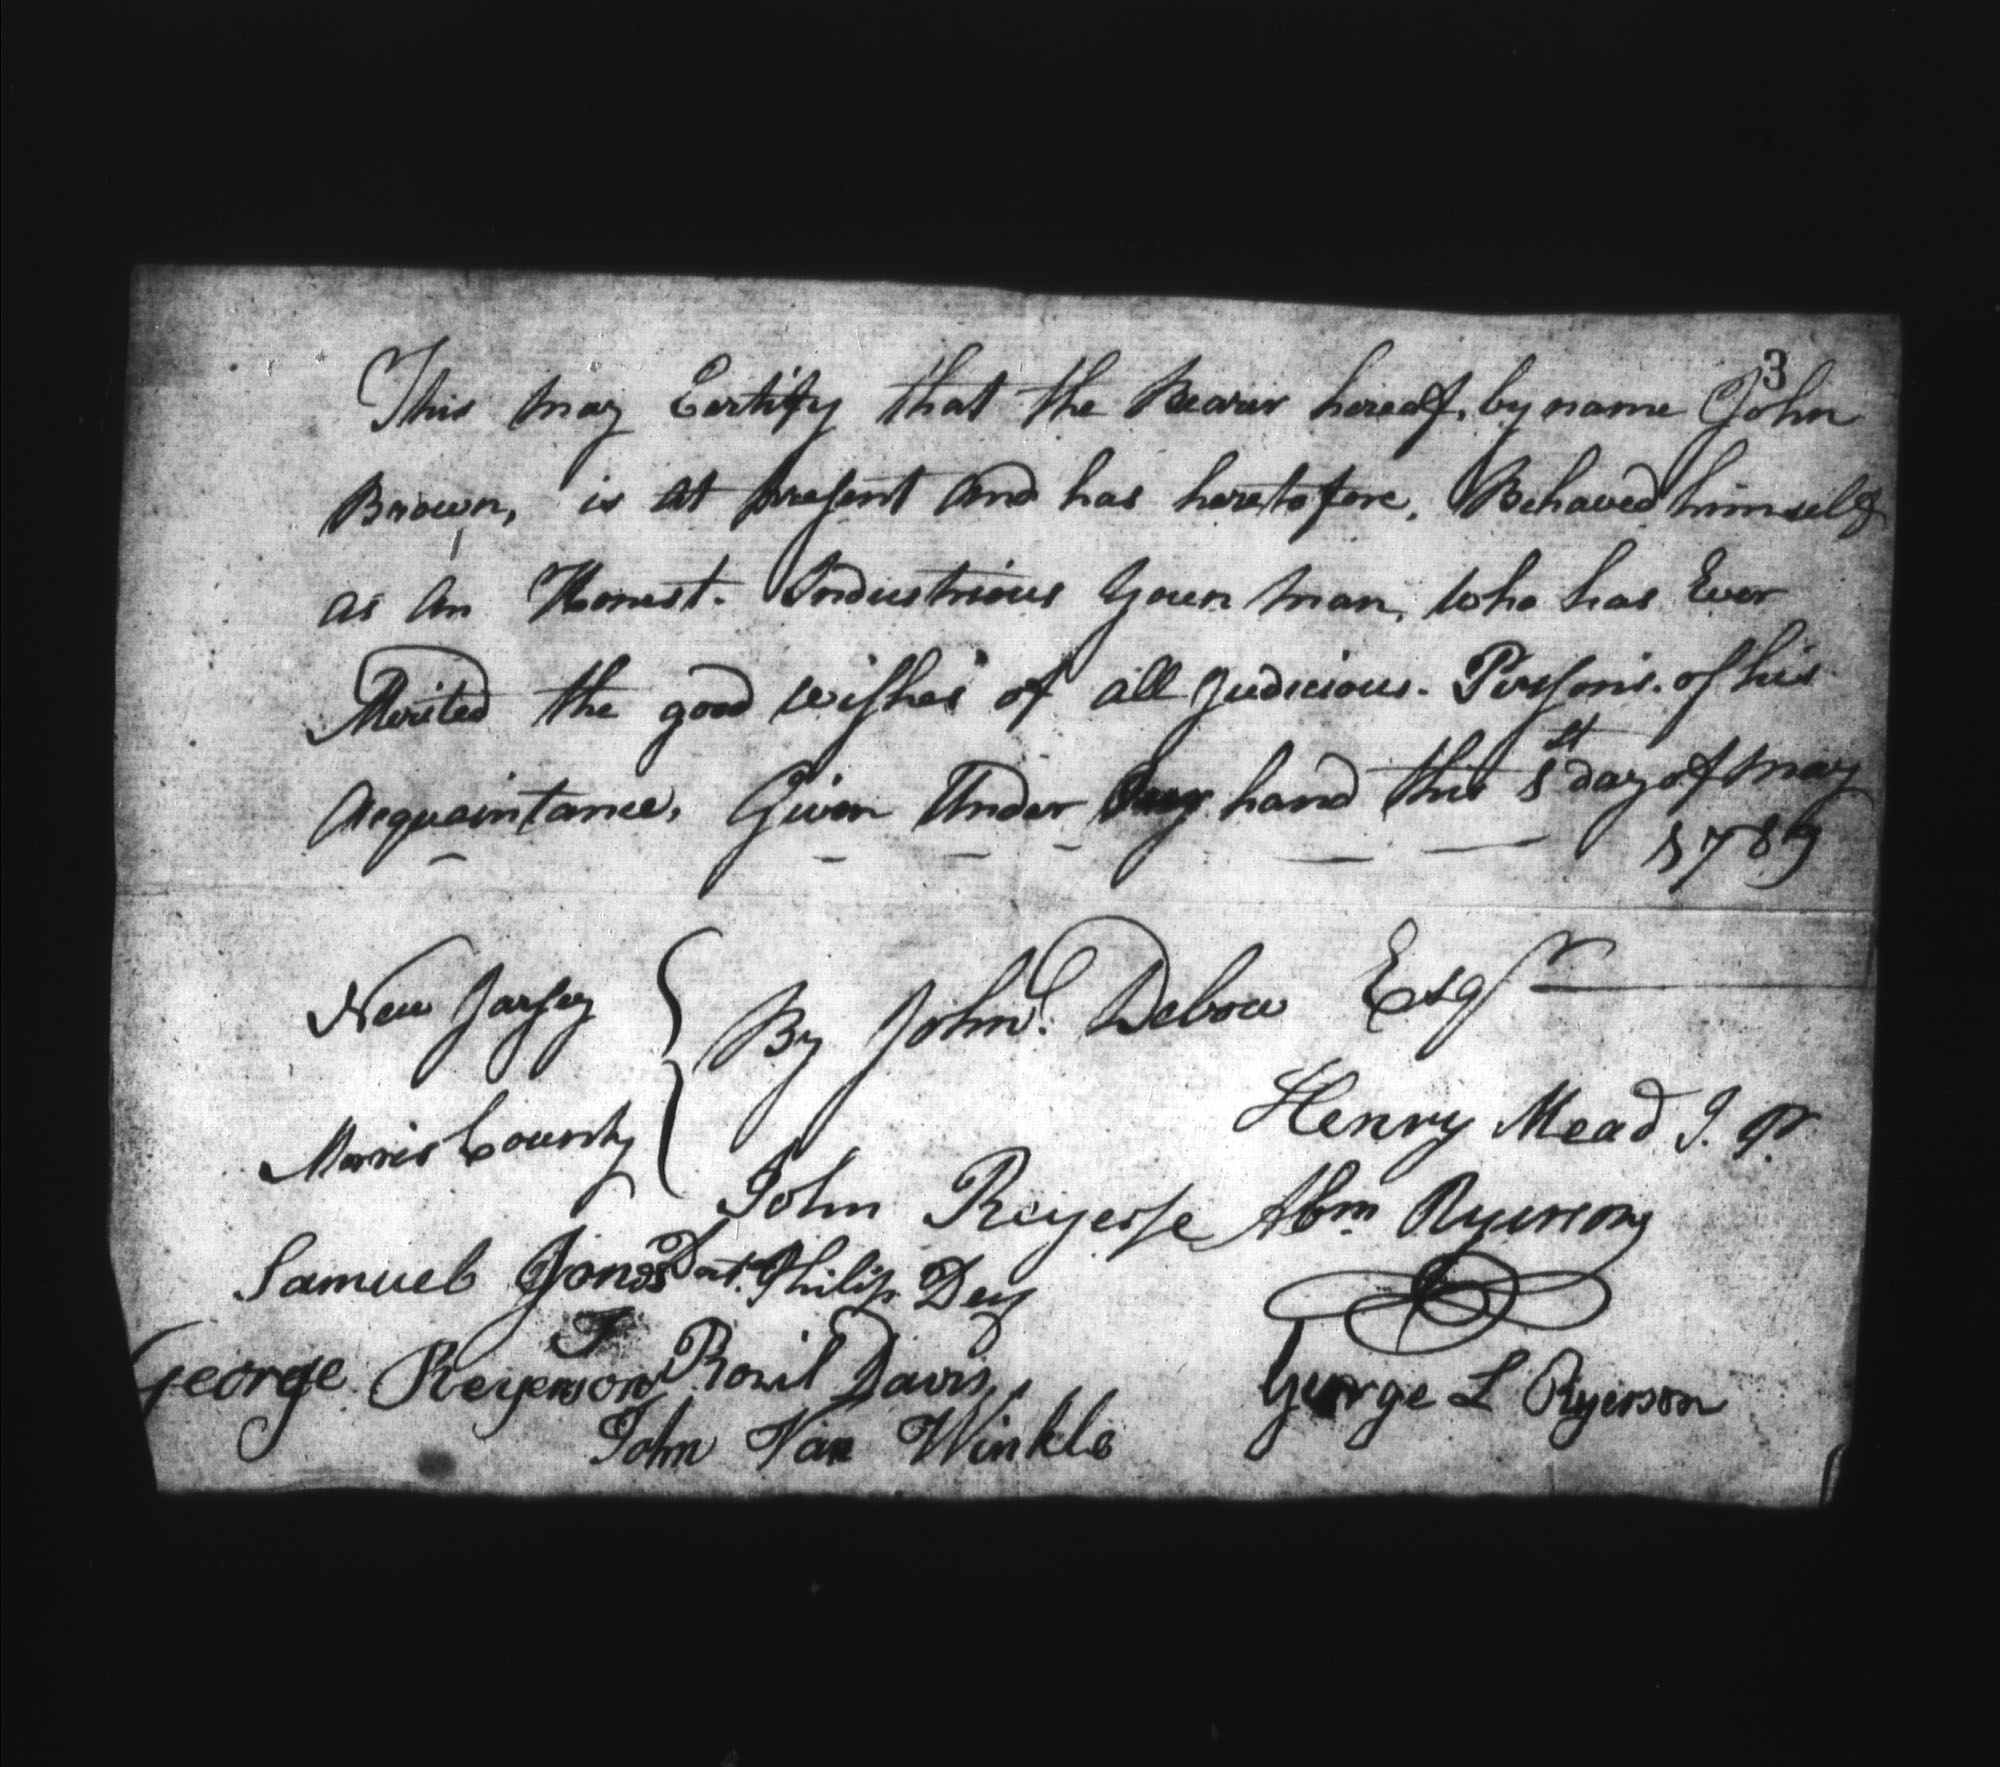 3
This may Certify that the Bearer hereof, by name John
Brown, is at present and has heretofore, Behaved himself
as an Honest. Industrious Youn man, who has Ever
Merited the good wishes of all Judicious. Persons. of his
Acquaintance, Given Under hand this 1st day of May
1789
New Jarsey
Morris County
By John Debow Esqr
Henry Mead J. Qr
John Reyerse Abm Ryerson
Samuel Jones Philip Dey
George Reyerson Davis George L Ryerson
John Van Winkle